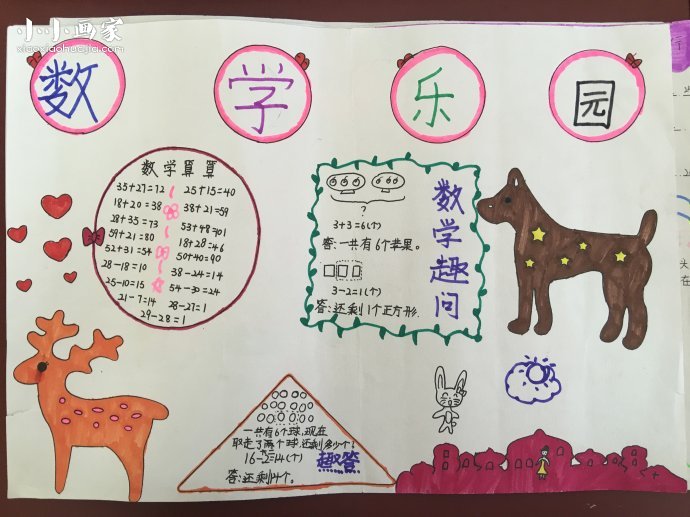 小小画家
xiaoxiaohuajia.com
数 学 乐 园
数学算算
35+27=12 25+15=40
18+20=38 38+21=59
28+35=73 53+48=101
59+21=80 18+28=46
52+31=54 50+40=90
28-18=10 38-24=14
25-10=15 54-30=24
21-7=14 28-27=1
29-28=1
?
3+3=6(个)
答:一共有6个苹果。
3-2=1(个)
答:还剩1个正方形.
数学趣问
一共有6个球,现在
取走了两个球,还剩多少个?
16-2=14(个)
趣答
答:还剩14个.